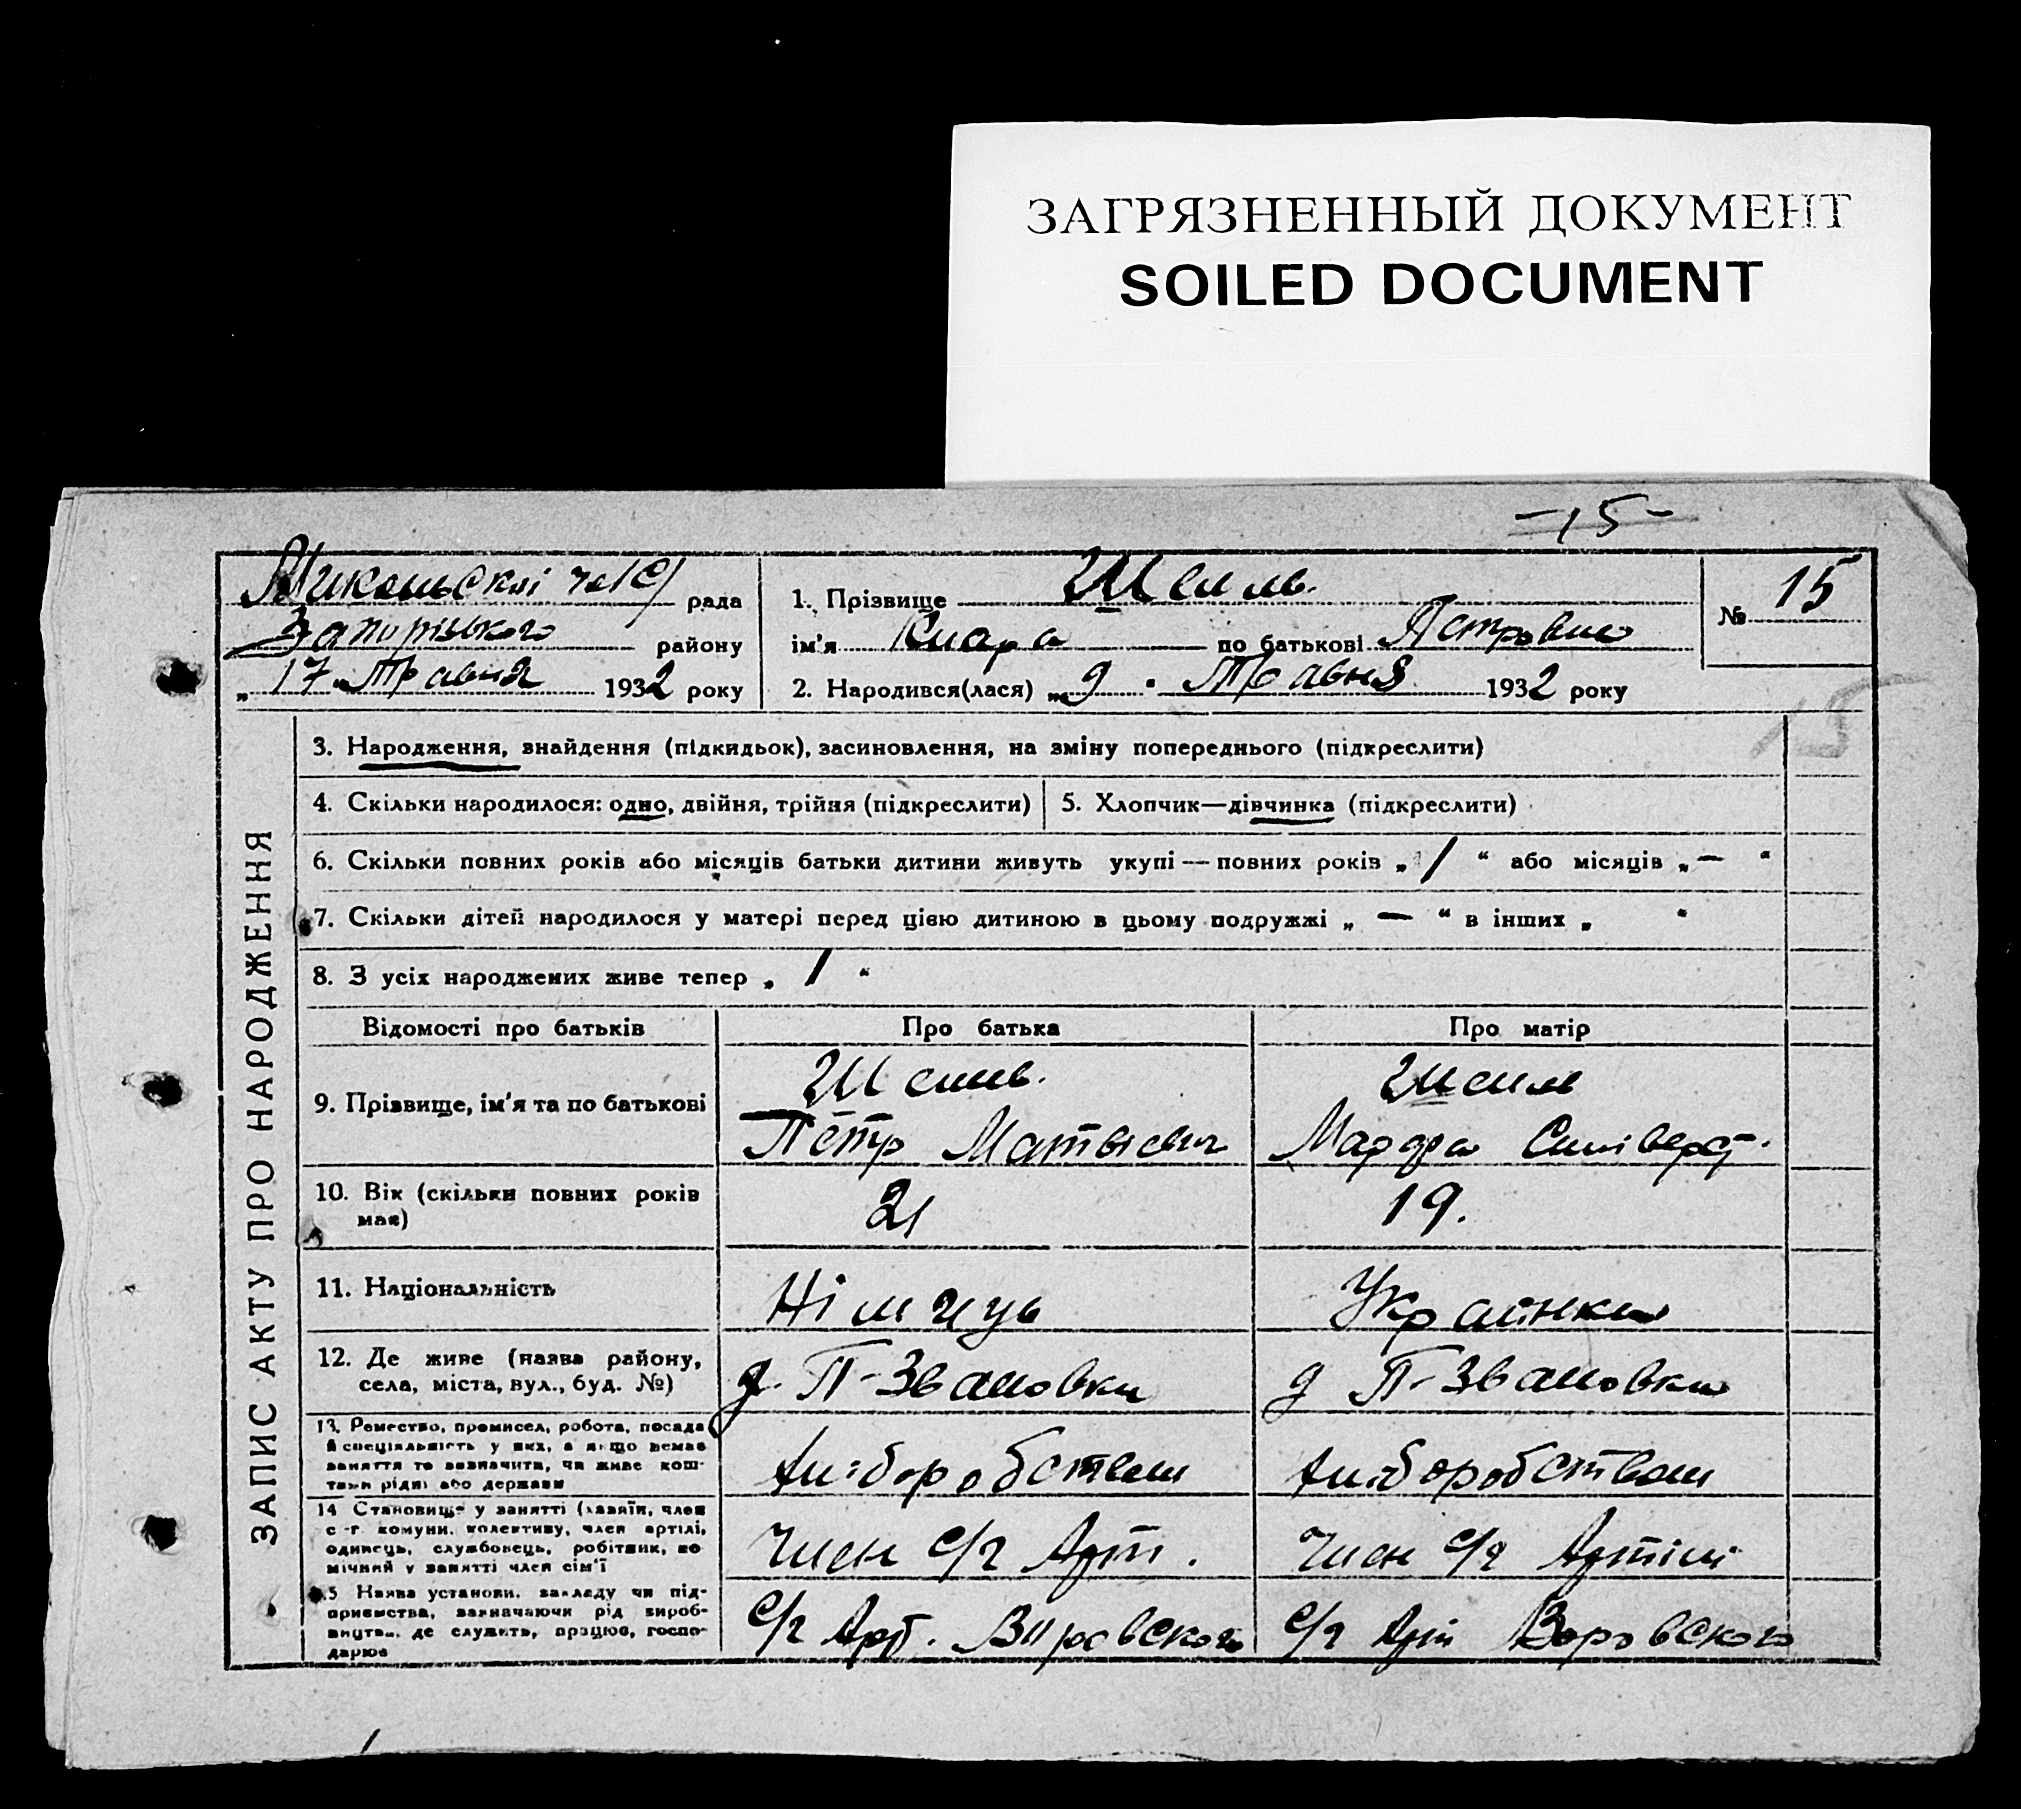 ЗАГРЯЗНЕННЫЙ ДОКУМЕНТ
SOILED DOCUMENT
-15-
рада
Запорізького району
„ 17 " Травня 1932 року
1. Прізвище
ім'я Клара по батькові Петровна
2. Народився(лася) „ 9 " Травня 1932 року
№ 15
15
ЗАПИС АКТУ ПРО НАРОДЖЕННЯ
3. Народження, знайдення (підкидьок), засиновлення, на зміну попереднього (підкреслити)
4. Скільки народилося: одно, двійня, трійня (підкреслити)
5. Хлопчик—дівчинка (підкреслити)
6. Скільки повних років або місяців батьки дитини живуть укупі — повних років „ 1 “ або місяців „ — “
7. Скільки дітей народилося у матері перед цією дитиною в цьому подружжі „ — “ в інших „ “
8. З усіх народжених живе тепер „ 1 “
Відомості про батьків Про батька Про матір
9. Прізвище, ім'я та по батькові
Петр Матвієвич
10. Вік (скільки повних років має) 21 19.
11. Національність Німець Українка
12. Де живе (назва району, села, міста, вул., буд. №)
13. Ремество, промисел, робота, посада
й спеціяльність у них, а якщо немає
заняття то зазначити, чи живе кош-
тами рідні або держави
Хліборобством Хліборобством
14 Становище у занятті (хазяїн, член
с -г. комуни, колективу, член артілі,
одинець, службовець, робітник, по-
мічний у занятті член сім'ї
Член с/г Арт. Член с/г Артілі
15 Назва установи, закладу чи під-
приємства, зазначаючи рід вироб-
ництва, де служить, працює, госпо-
дарює
с/г Арт. Воровского с/г Арт Воровского